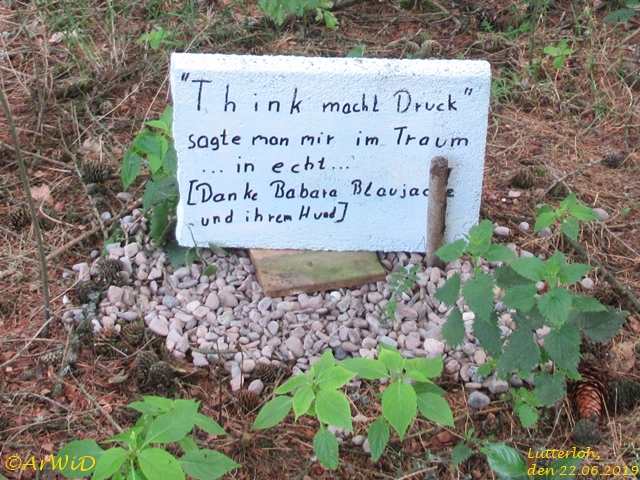 "Think macht Druck"
sagte man mir im Traum
... in echt...
[Danke Babara Blaujacke
und ihrem Hund]
©ArWiD
Lutterloh,
den 22.06.2019